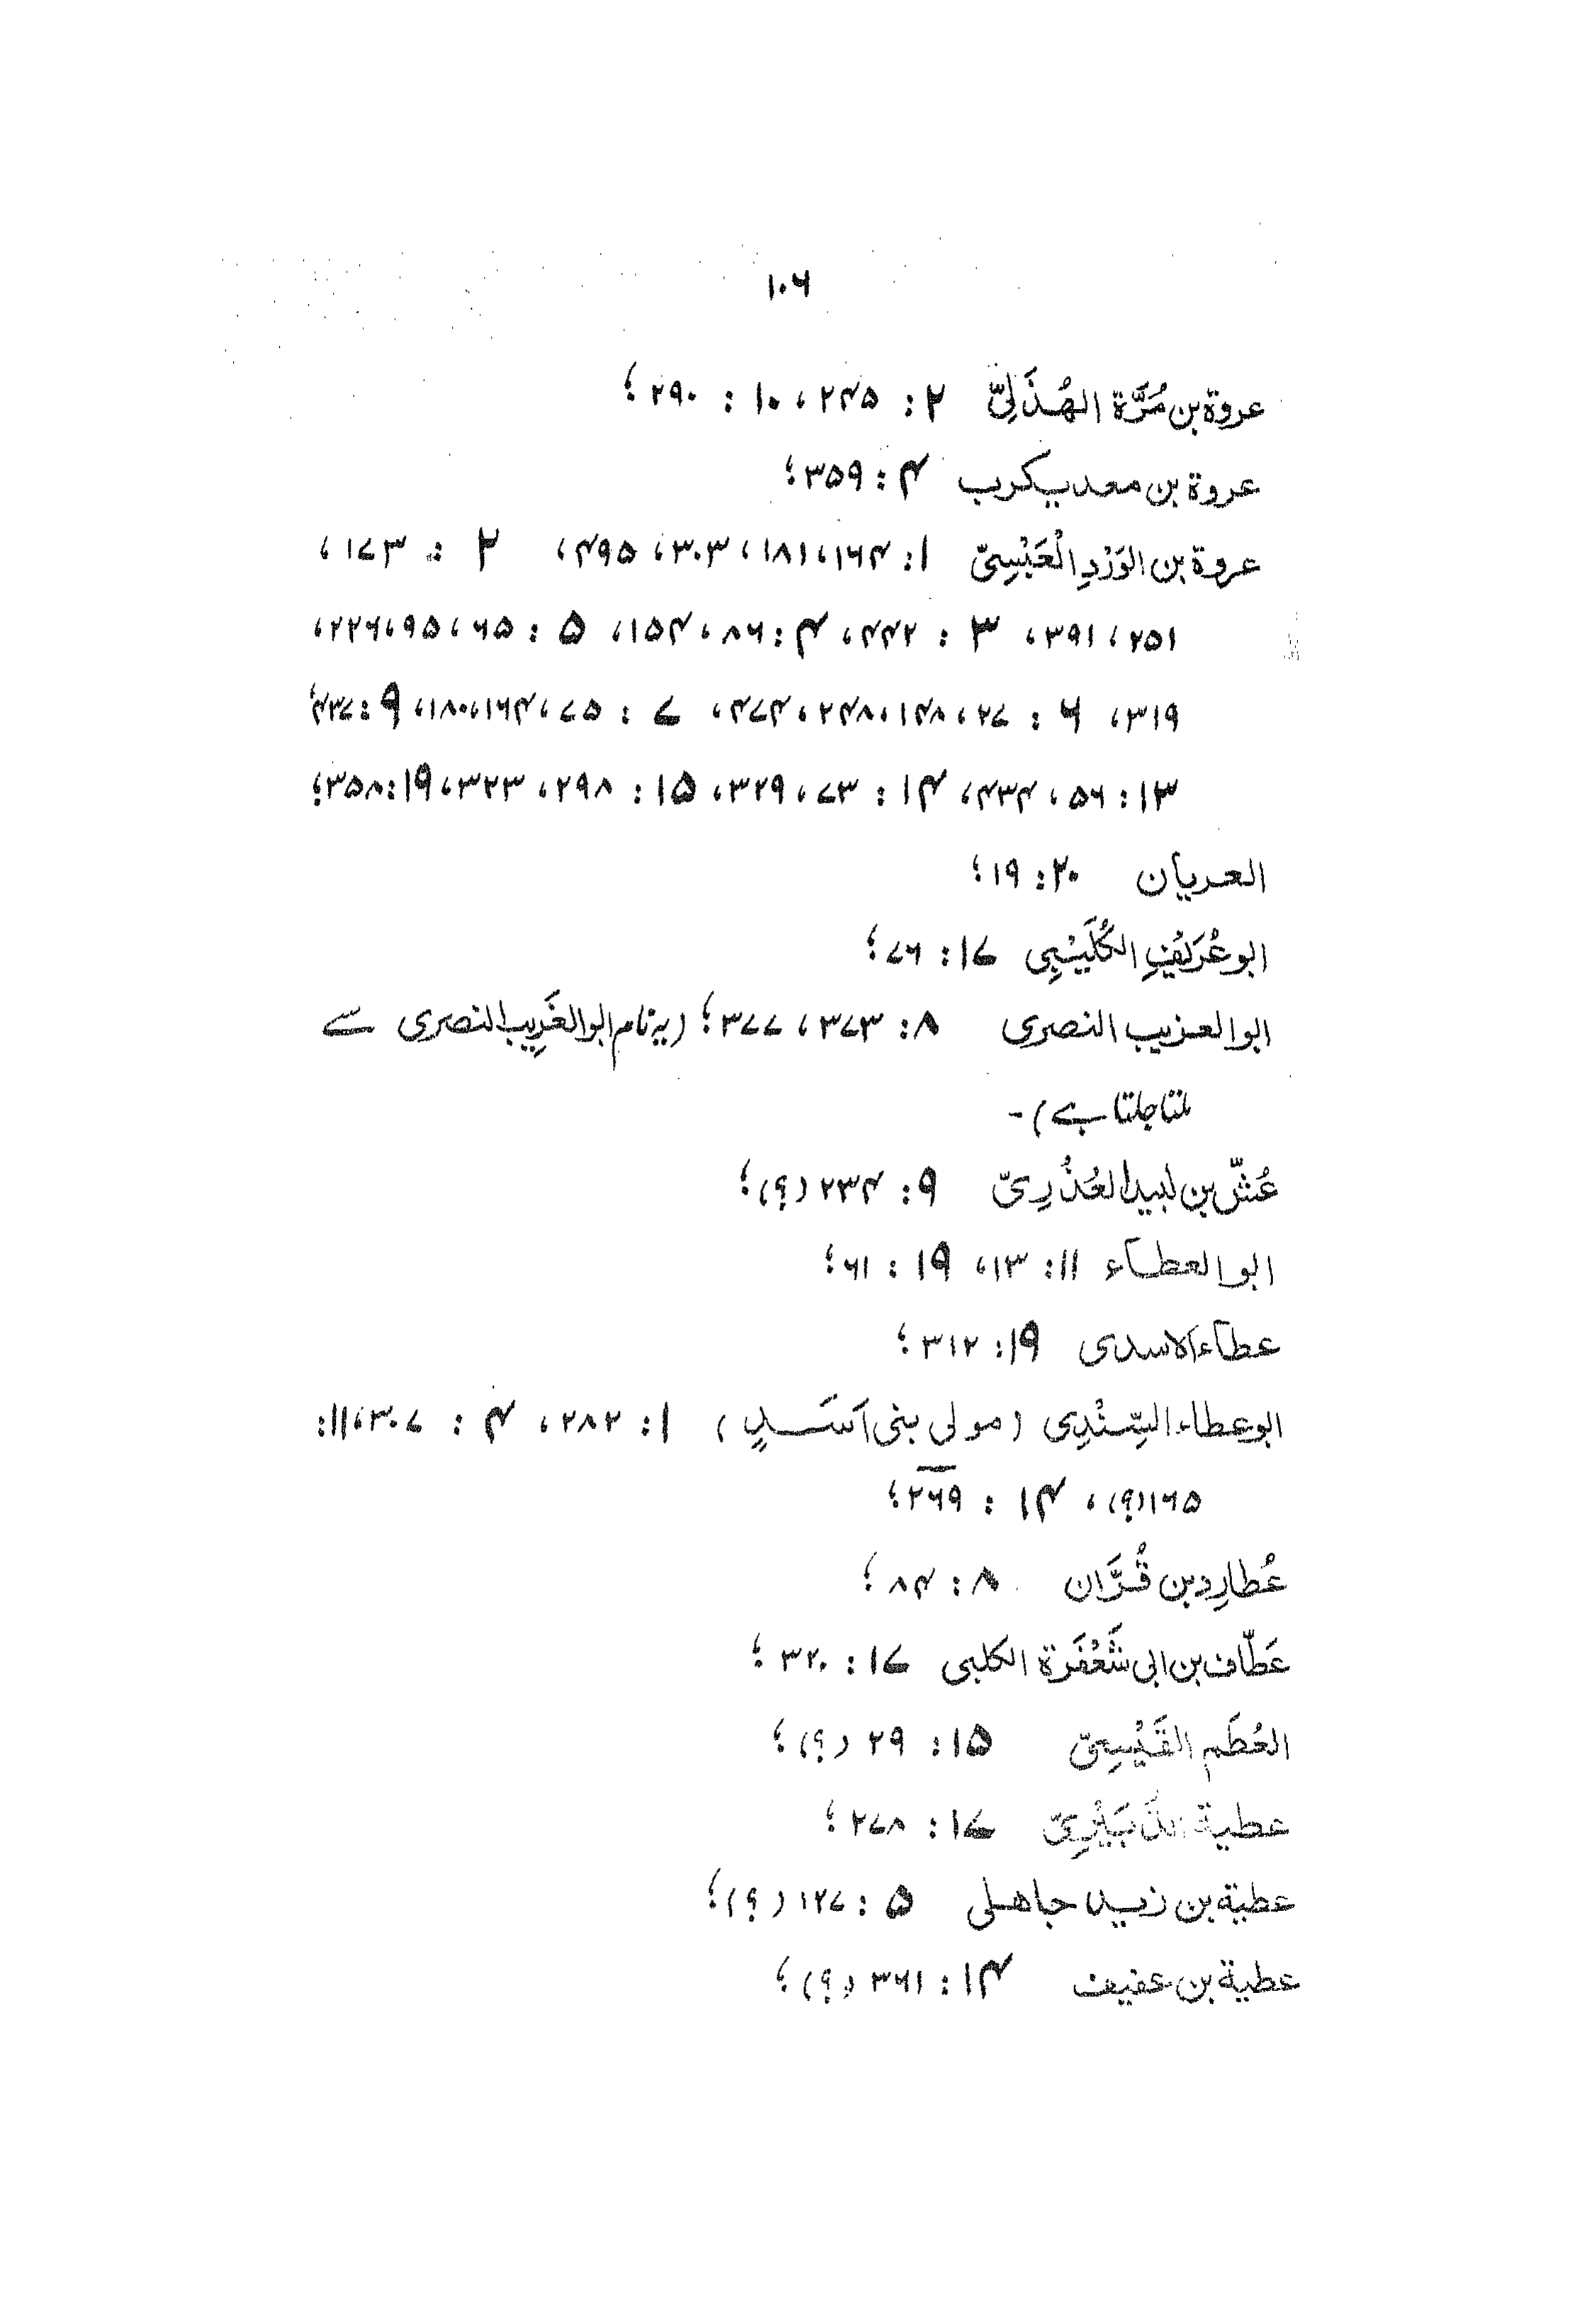 ۱۰۶
عروة بن مُرَّة الهُذَلِيّ ۲ : ۲۴۵، ۱۰ : ۲۹۰؛
عروة بن معدیکرب ۴ : ۳۵۹؛
عروة بن الوَرْدِ الْعَبْسِیّ ۱ : ۱۶۴، ۱۸۱، ۳۰۳، ۴۹۵، ۲ : ۱۷۳،
۲۵۱، ۳۹۱، ۳ : ۴۴۲، ۴ : ۸۶، ۱۵۴، ۵ : ۶۵، ۹۵، ۲۲۶،
۳۱۹، ۶ : ۲۷، ۱۴۸، ۲۴۸، ۴۷۴، ۷ : ۷۵، ۱۶۴، ۱۸۰، ۹ : ۴۳۷
۱۳ : ۵۶، ۴۳۴، ۱۴ : ۷۳، ۳۲۹، ۱۵ : ۲۹۸، ۳۲۳، ۱۹ : ۳۵۸؛
العریان ۲۰ : ۱۹؛
ابو عُرَيْفِ الكُلَيْبِي ۱۷ : ۷۶؛
ابو العزیب النصری ۸ : ۳۷۳، ۳۷۷؛ (یہ نام ابو الغَرِیب النصری سے
ملتا جلتا ہے) -
عُشّ بن لبید العُذْرِیّ ۹ : ۲۳۴ (؟)؛
ابو العطاء ۱۱ : ۱۳، ۱۹ : ۶۱؛
عطاء الاسدی ۱۹ : ۳۱۲؛
ابو عطاء السِّنْدِی (مولی بنی اَسَدٍ) ۱ : ۲۸۲، ۴ : ۳۰۷، ۱۱ :
۱۶۵(؟)، ۱۴ : ۲۶۹؛
عُطارِد بن قُرَّان ۸ : ۸۴؛
عَطّاف بن ابی شَعْفَرَة الکلبی ۱۷ : ۳۲۰؛
العُطَم القَيْسِیّ ۱۵ : ۲۹ (؟)؛
عطیة ۱۷ : ۲۷۸؛
عطیة بن زید جاهلی ۵ : ۱۲۷ (؟)؛
عطیة بن عفیف ۱۴ : ۳۶۱ (؟)؛